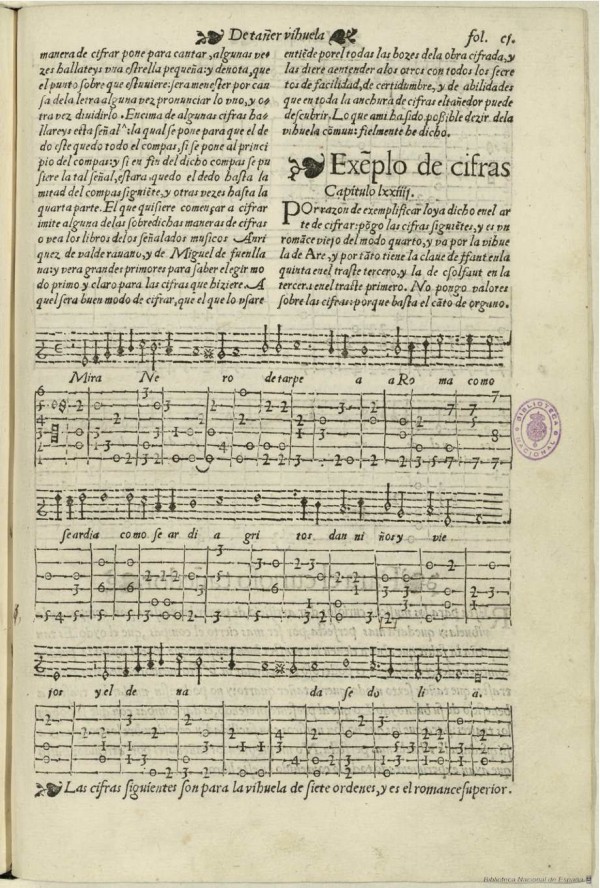 De tañer vihuela
fol. cj.
manera de cifrar pone para cantar, algunas ve-
zes hallateys vna estrella pequeña: y denota, que
el punto sobre que estuuiere: sera menester por cau
sa dela letra alguna vez pronunciar lo vno, y o-
tra vez diuidirlo. Encima de algunas cifras ha-
llareys esta señal ^: la qual se pone para que el de
do este quedo todo el compas, si se pone al princi
pio del compas: y si en fin del dicho compas se pu
siere la tal señal, estara quedo el dedo hasta la
mitad del compas siguiẽte, y otras vezes hasta la
quarta parte. El que quisiere començar a cifrar
imite alguna delas sobredichas maneras de cifras
o vea los libros delos señalados musicos Anri
quez de valderauano, y de Miguel de fuenlla
na: y vera grandes primores para saber elegir mo
do primo y claro para las cifras que hiziere. A
quel sera buen modo de cifrar, que el que lo vsare
entiẽde por el todas las bozes dela obra cifrada, y
las diere a entender a los otros con todos los secre
tos de facilidad, de certidumbre, y de abilidades
que en toda la anchura de cifras el tañedor puede
descubrir. Lo que a mi ha sido poßible dezir dela
vihuela comun: fielmente he dicho.
Exẽplo de cifras
Capitulo lxxiiij.
POr razon de exemplificar lo ya dicho en el ar
te de cifrar: põgo las cifras siguiẽtes, y es vn
romãce viejo del modo quarto, y va por la vihue
la de Are, y por tãto tiene la claue de ffaut en la
quinta en el traste tercero, y la de csolfaut en la
tercera en el traste primero. No pongo valores
sobre las cifras: porque basta el cãto de organo.
Mira Ne ro de tarpe a a Ro ma como
se ardia como se ar di a gri tos dan ni ños y vie
jos y el de na da se do li a.
Las cifras siguientes son para la vihuela de siete ordenes, y es el romance superior.
Biblioteca Nacional de España